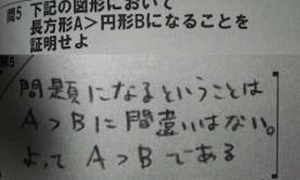 問5 下記の図形において
長方形A>円形Bになることを
証明せよ
問題になるということは
A>Bに間違いはない。
よって A>Bである